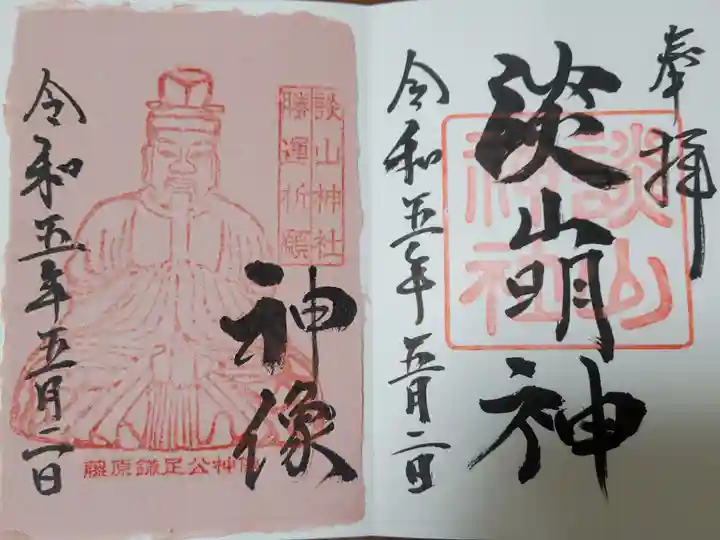 奉拝
談山神社
淡山明神
令和五年五月二日
談山神社
勝運祈願
神像
令和五年五月二日
藤原鎌足公御神像